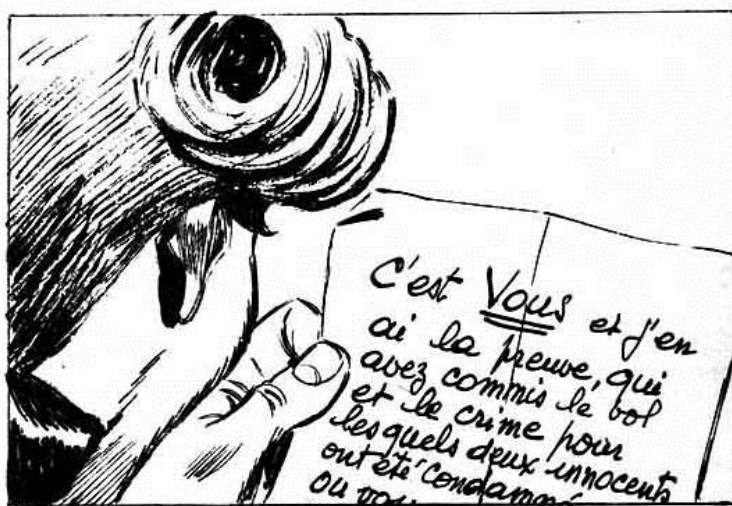 C'est Vous et j'en
ai la preuve, qui
avez commis le vol
et le crime pour
lesquels deux innocents
ont été condamné
ou